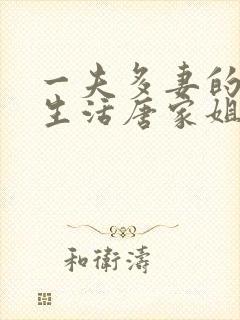 一夫多妻的
生活唐家姐
和衛濤